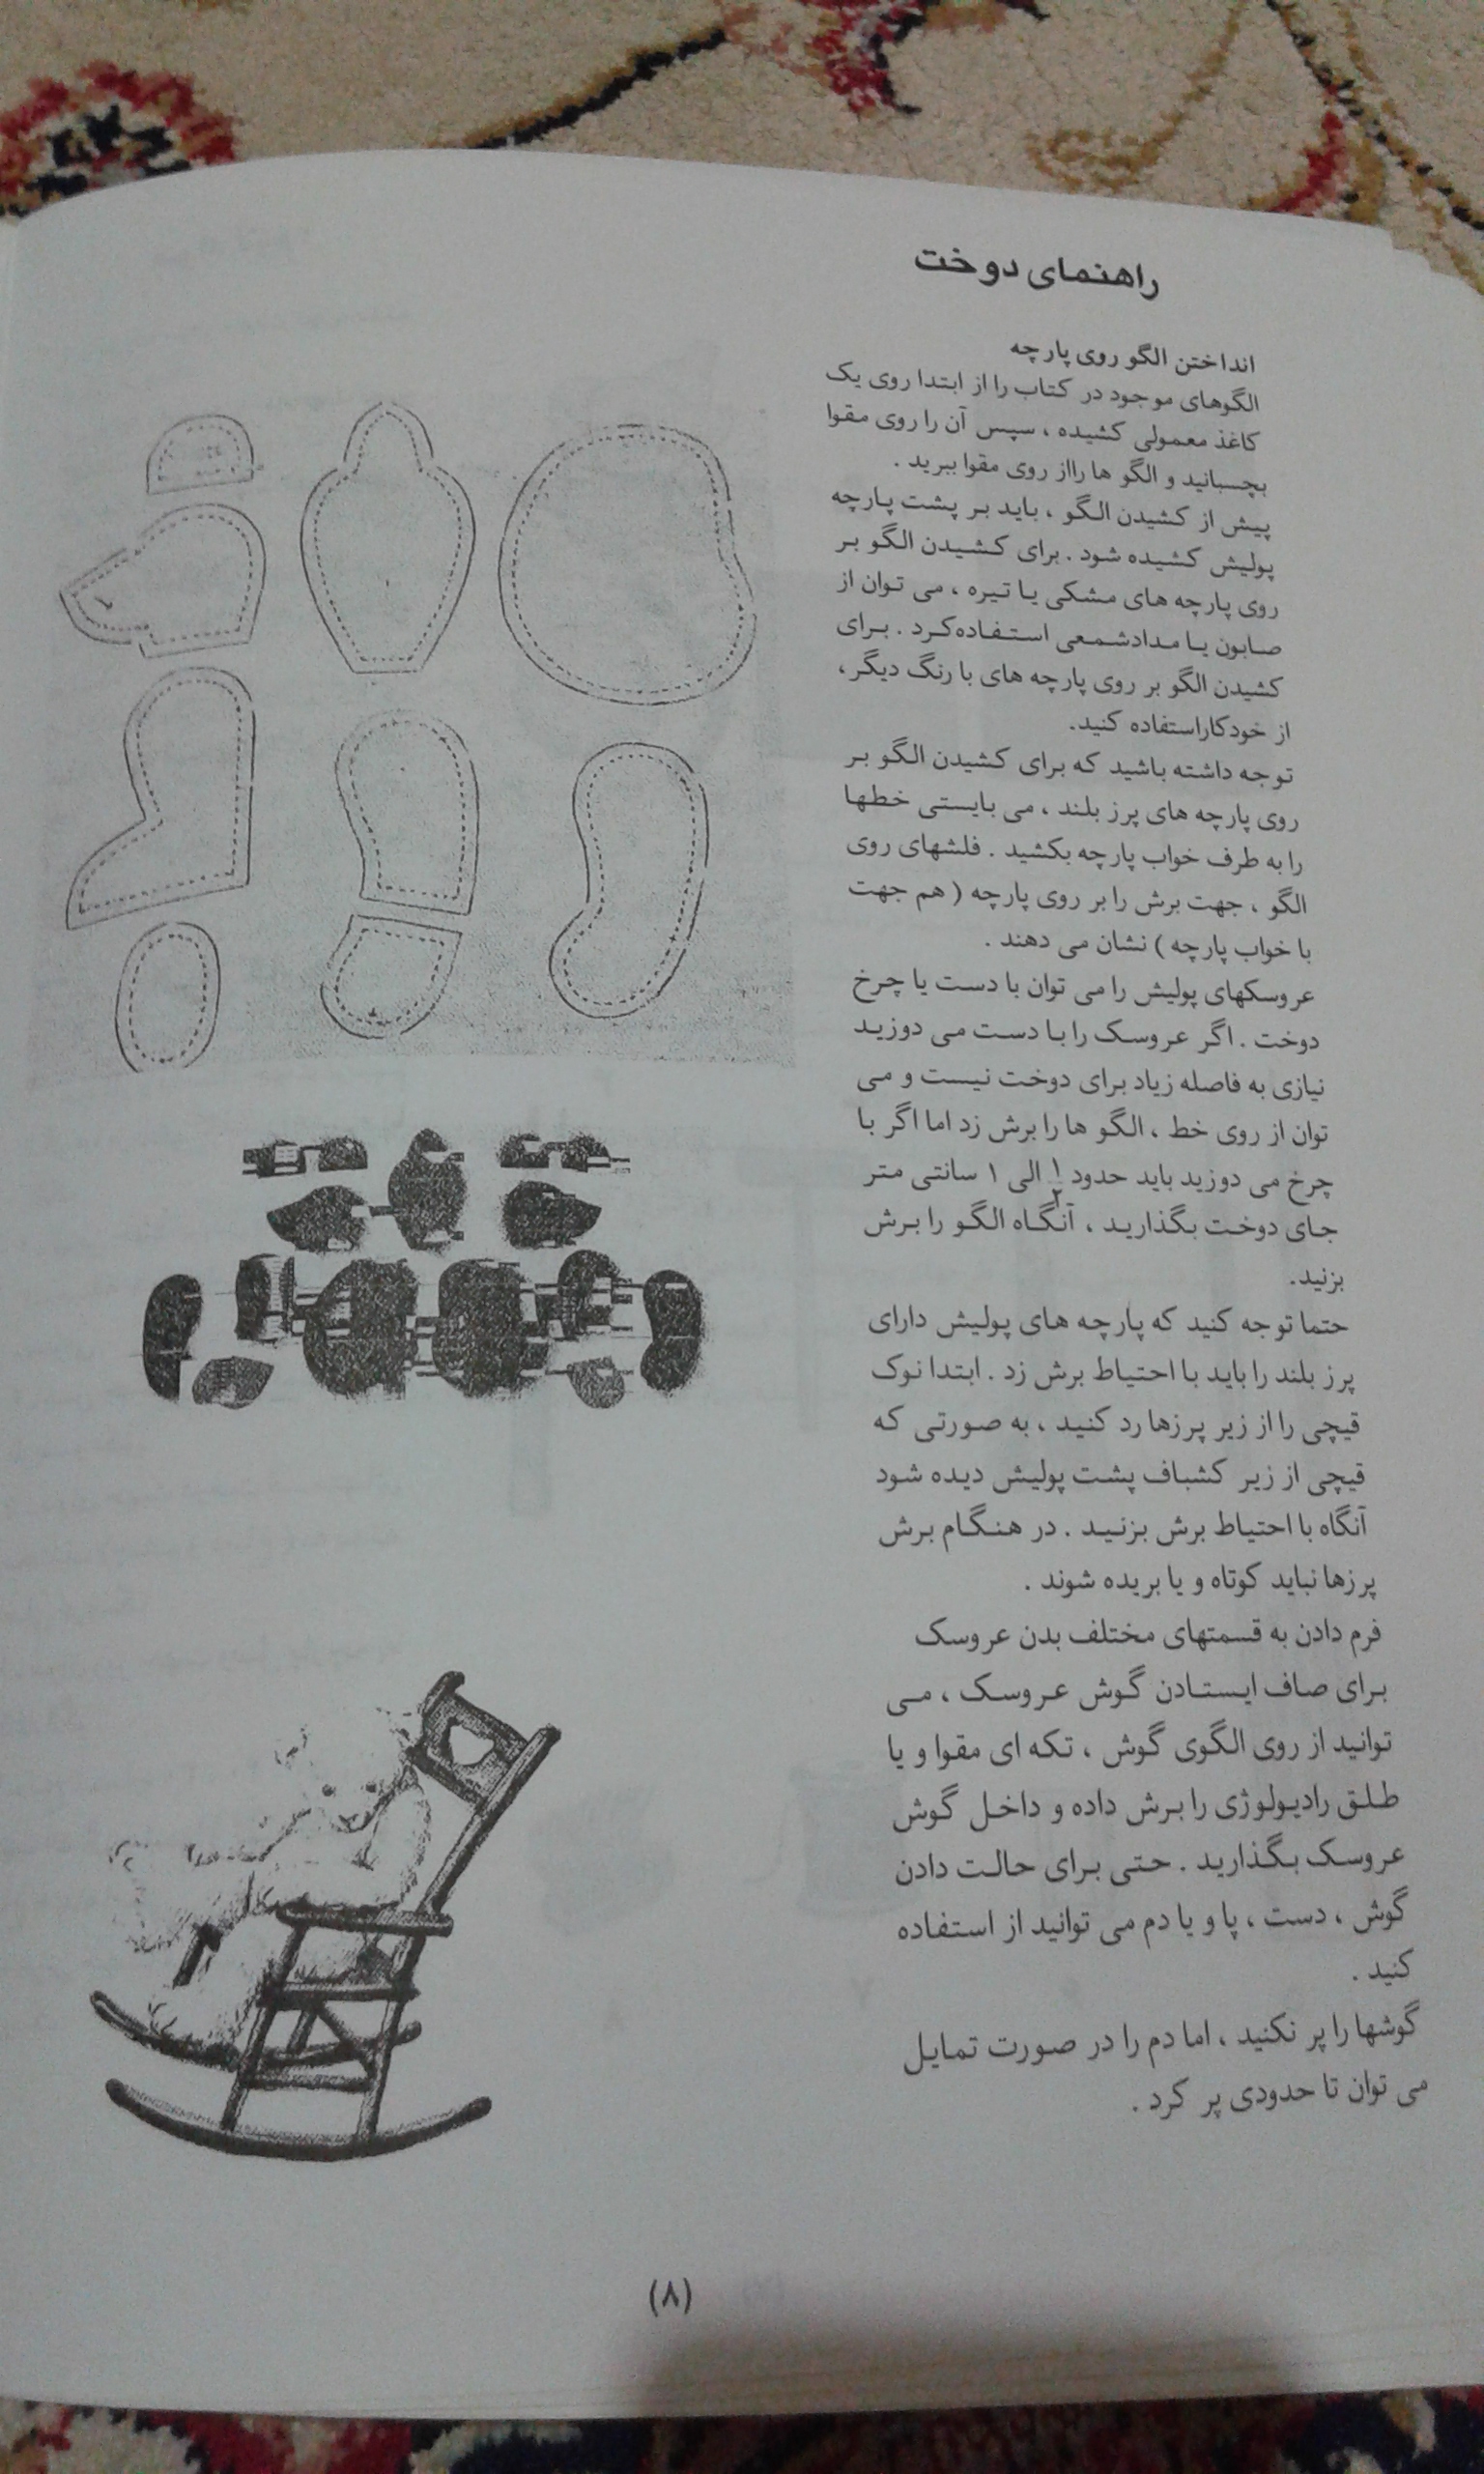 راهنمای دوخت
انداختن الگو روی پارچه
الگوهای موجود در کتاب را از ابتدا روی یک
کاغذ معمولی کشیده ، سپس آن را روی مقوا
بچسبانید و الگو ها رااز روی مقوا ببرید .
پیش از کشیدن الگو ، باید بر پشت پارچه
پولیش کشیده شود . برای کشیدن الگو بر
روی پارچه های مشکی یا تیره ، می توان از
صابون یا مدادشمعی استفاده‌کرد . برای
کشیدن الگو بر روی پارچه های با رنگ دیگر،
از خودکاراستفاده کنید.
توجه داشته باشید که برای کشیدن الگو بر
روی پارچه های پرز بلند ، می بایستی خطها
را به طرف خواب پارچه بکشید . فلشهای روی
الگو ، جهت برش را بر روی پارچه ( هم جهت
با خواب پارچه ) نشان می دهند .
عروسکهای پولیش را می توان با دست یا چرخ
دوخت . اگر عروسک را با دست می دوزید
نیازی به فاصله زیاد برای دوخت نیست و می
توان از روی خط ، الگو ها را برش زد اما اگر با
چرخ می دوزید باید حدود ۱/۲ الی ۱ سانتی متر
جای دوخت بگذارید ، آنگاه الگو را برش
بزنید.
حتما توجه کنید که پارچه های پولیش دارای
پرز بلند را باید با احتیاط برش زد . ابتدا نوک
قیچی را از زیر پرزها رد کنید ، به صورتی که
قیچی از زیر کشباف پشت پولیش دیده شود
آنگاه با احتیاط برش بزنید . در هنگام برش
پرزها نباید کوتاه و یا بریده شوند .
فرم دادن به قسمتهای مختلف بدن عروسک
برای صاف ایستادن گوش عروسک ، می
توانید از روی الگوی گوش ، تکه ای مقوا و یا
طلق رادیولوژی را برش داده و داخل گوش
عروسک بگذارید . حتی برای حالت دادن
گوش ، دست ، پا و یا دم می توانید از استفاده
کنید .
گوشها را پر نکنید ، اما دم را در صورت تمایل
می توان تا حدودی پر کرد .
(۸)